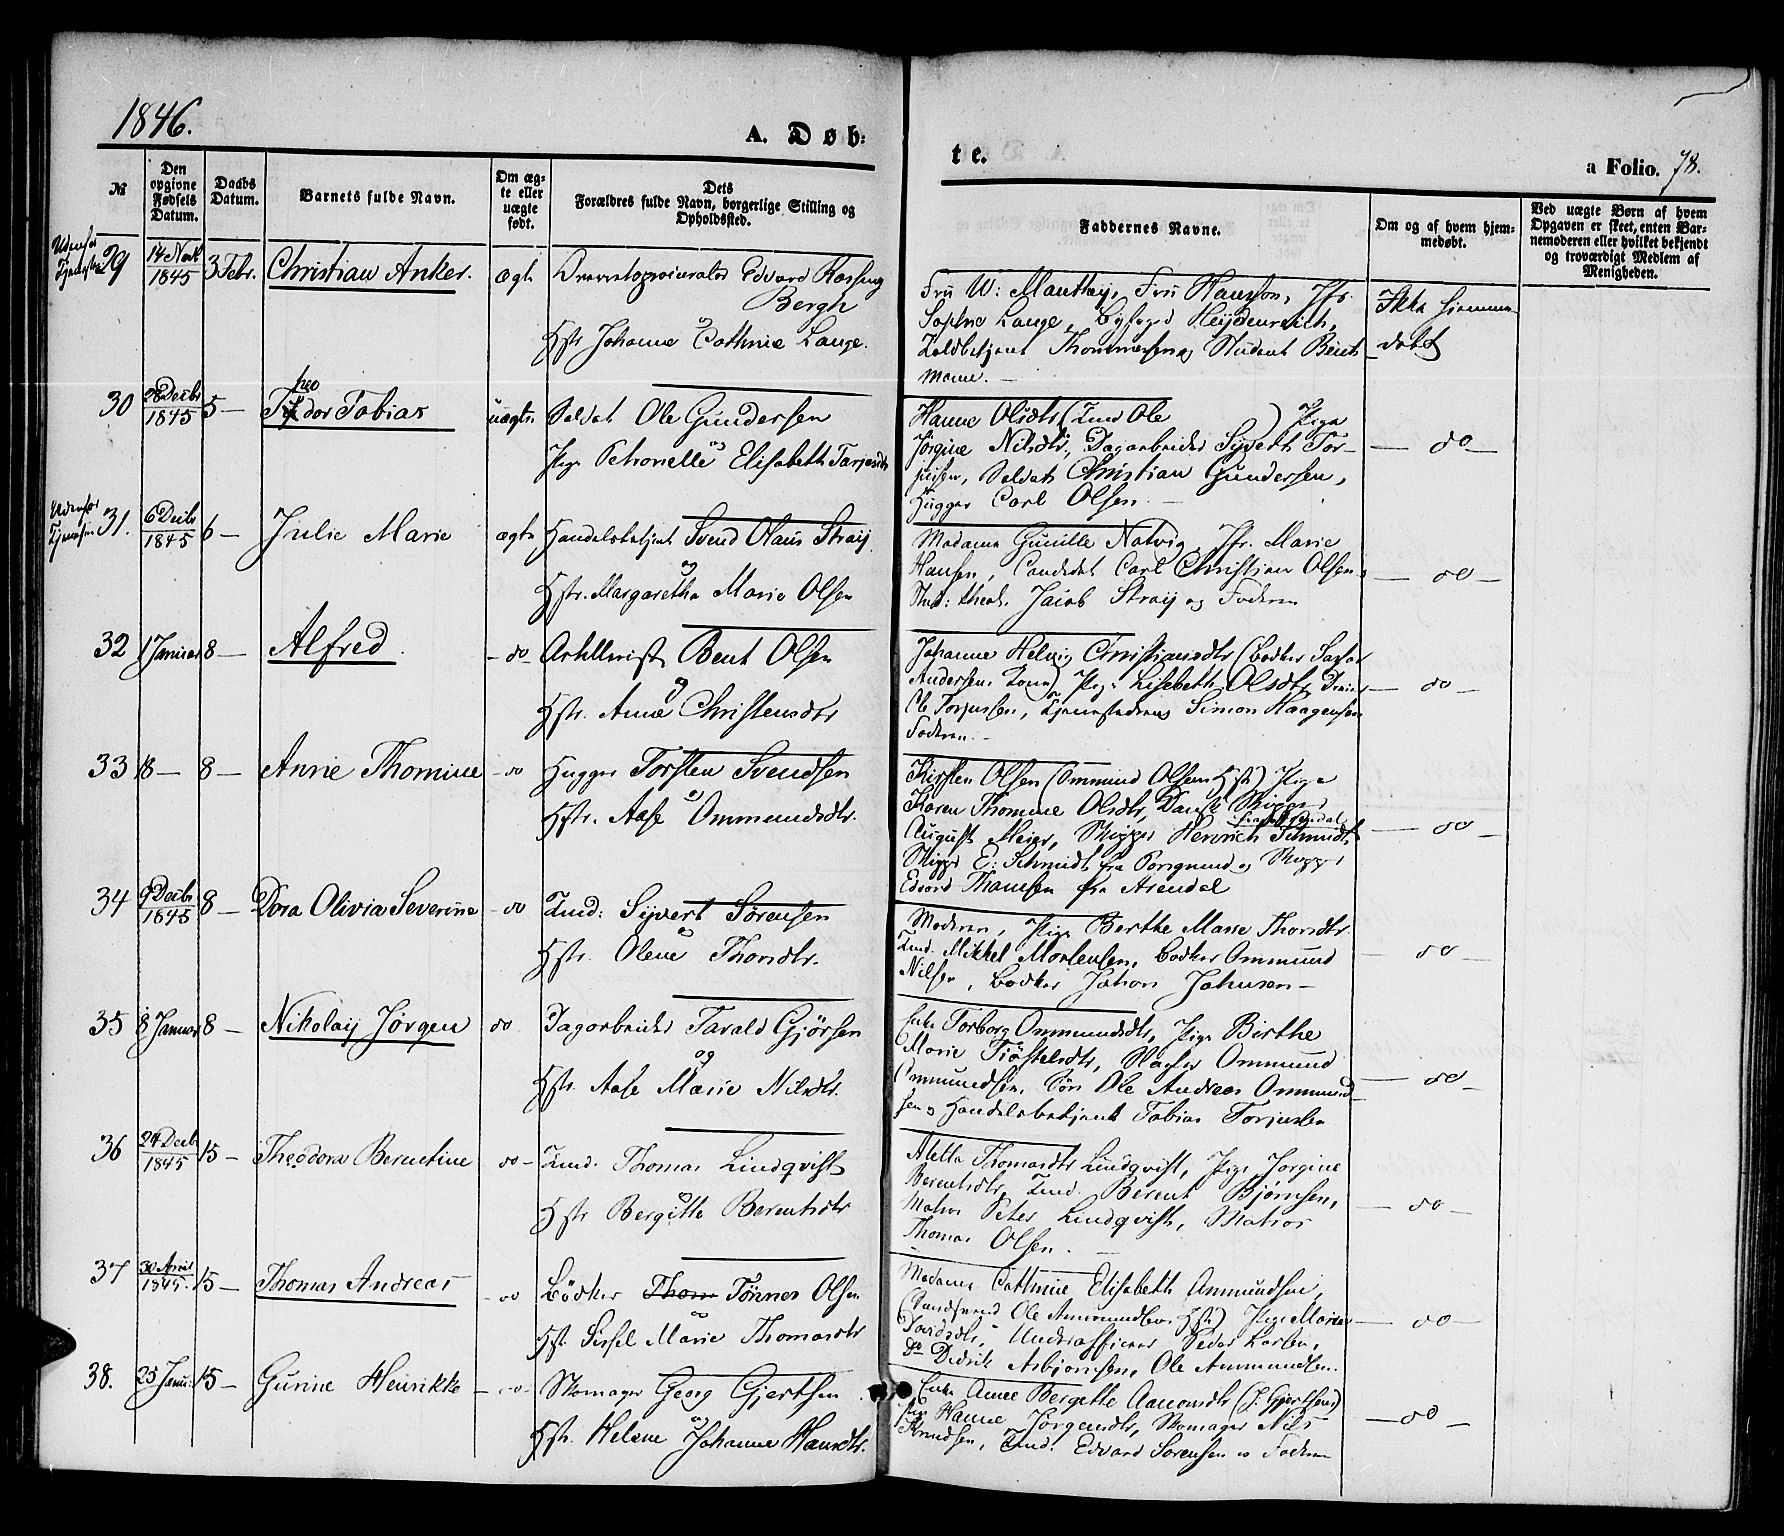 1846.
A. Døb:
te.
a Folio. 78.
№
Den opgivne Fødsels Datum.
Daabs Datum.
Barnets fulde Navn.
Om ægte eller uægte født.
Dets Forældres fulde Navn, borgerlige Stilling og Opholdssted.
Faddernes Navne.
Om og af hvem hjemmedøbt.
Ved uægte Børn af hvem Opgaven er skeet, enten Barnemoderen eller hvilket bekjendt og troværdigt Medlem af Menigheden.
29 14 Novb 1845 3 Febr. Christian Anker. ægte Edvard Bergh
Hstr Johanne Cathrine Lange.
Fru W: Manthey, Fru Hansson, Jfr.
Sophie Lange, Byfoged Heydenreich,
Toldbetjent Thommesen og Student Bent
Ikke hjemme
døbt
30 28 Decbr 1845 5 — Theodor Tobias uægte Soldat Ole Gundersen
og
Pige Petronelle Elisabeth Tarjesdtr
Hanne Olsdtr ( Ole ) Pige
Jørgine Nilsdtr, Dagarbeider Syvert Tor-
jusen, Soldat Christian Gundersen,
Hugger Carl Olsen. —
— do —
31. 6 Decbr 1845 6 — Julie Marie ægte Handelsbetjent Svend Olaus Straij
og
Hstr. Margarethe Marie Olsen
Madame Gunille Natvig, Jfr. Marie
Hansen, Candidat Carl Christian Olsen,
Stud: theol. Jacob Straij og Faderen
— do —
32 1 Januar 8 — Alfred. — do — Artillerist Bent Olsen
og
Hstr. Anne Christensdtr
Johanne Helvig Christiansdtr (Bødker
Andersens Kone) Pige Lisebeth Olsdtr,
Ole Torjussen, Simon Haagensen
Faderen. —
— do —
33 18 — 8 — Anne Thomine — do Hugger Torsten Svendsen
og
Hstr. Aase Ommundsdtr.
Kirsten Olsen (Ommund Olsens Hst) Pige
Karen Thomine Olsdtr, Dansk Skipper
August Meier, Skipper Henrich Schmidt
Skipper E: Schmidt fra Porsgrund og Skipper
Edvard Thamsen fra Arendal
— do —
34 9 Decbr 1845 8 — Dora Olivia Severine — do Syvert Sørensen
og
Hstr. Olene Thorsdtr.
Moderen, Pige Berthe Marie Thorsdtr.
Mikkel Mortensen, Bødker Ommund
Nilsen, Bødker Johan Johnsen —
— do —
35 8 Januar 8 — Nikolaij Jørgen do Dagarbeider Tarald Gjørsen
og
Hstr. Aase Marie Nilsdtr.
Enke Torborg Ommundsdtr, Pige Birthe
Marie Tjøstelsdtr, Ommund
Ommundsen, Ole Andreas Ommund
sen og Handelsbetjent Tobias Torjusen
— do —
36 24 Decbr 1845 15 — Theodora Berentine do — Thomas Lindqvist
og
Hstr Bergitte Berentsdtr
Alette Thomasdtr Lindqvist, Pige Jørgine
Berentsdtr, Berent Bjørnsen,
Matros Peter Lindqvist, Matros
Thomas Olsen. —
— do —
37 30 April 1845. 15 — Thomas Andreas — do Bødker Thom Tønnes Olsen
og
Hst. Sissel Marie Thomasdtr
Madame Cathrine Elisabeth Ammundsen,
Ole Ammundsens Hst) Pige Maren
Davidsdtr, Underofficier Peder Larsen,
do Didrik Asbjørnsen, Ole Ammundsen.
— do —
38. 25 Janu. 15 — Gurine Henrikke — do — Skomager Georg Gjertsen
og
Hst. Helene Johanne Hansdtr.
Enke Anne Bergitte Aanonsdtr (J. Gjertsens)
Pige Hanne Jørgensdtr, Skomager Nils
Knudsen, Edvard Sørensen og Faderen
— do —